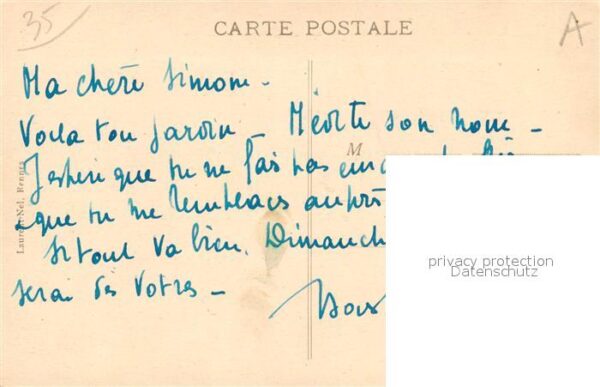 35
A
CARTE POSTALE
Ma chère Simone -
Voila ton jardin Mérite son nom -
M
J'espère que tu ne fais pas
que tu me remplaces auprès
Si tout va bien. Dimanche
serai des votres -
Laurent-Nel, Rennes
privacy protection
Datenschutz